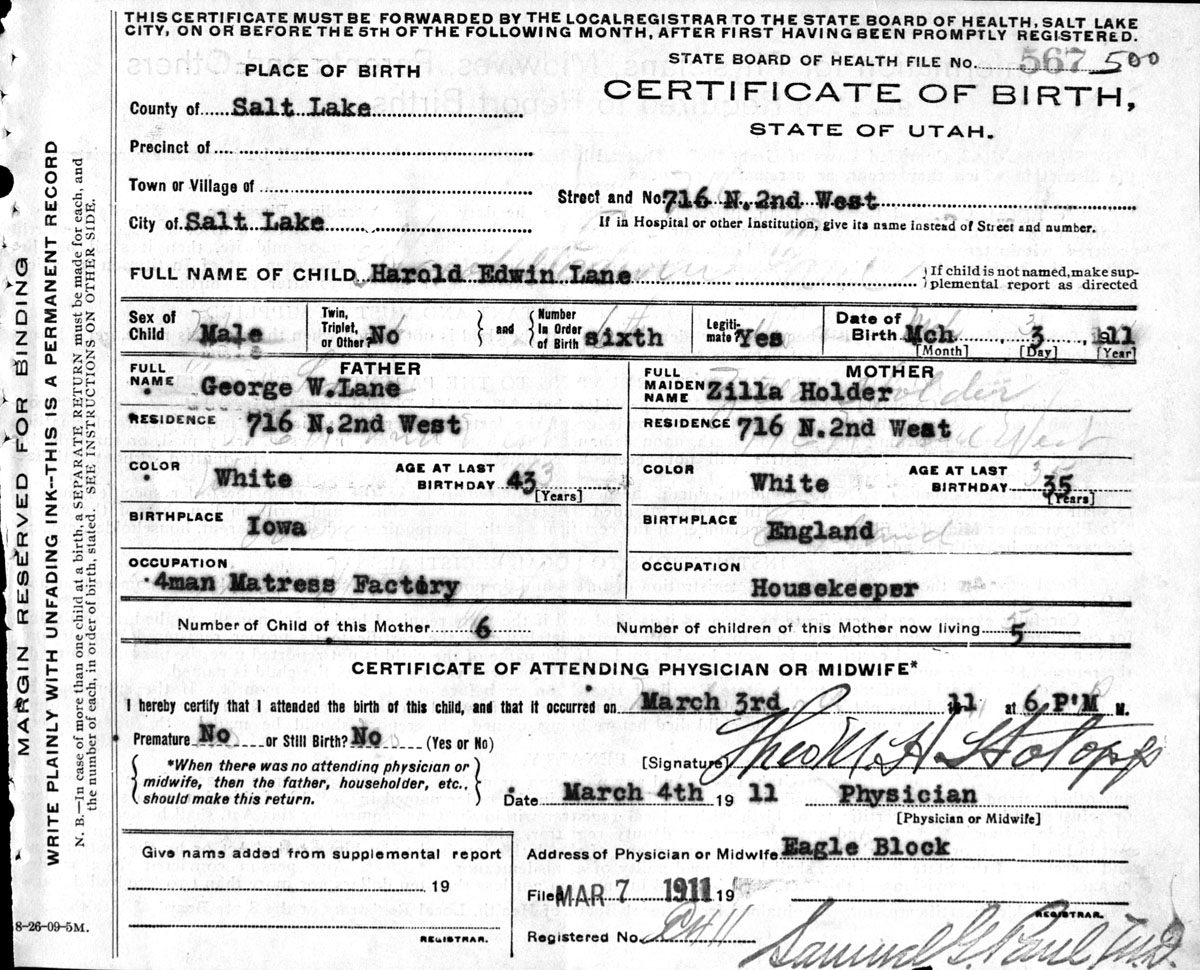 THIS CERTIFICATE MUST BE FORWARDED BY THE LOCAL REGISTRAR TO THE STATE BOARD OF HEALTH, SALT LAKE
CITY, ON OR BEFORE THE 5TH OF THE FOLLOWING MONTH, AFTER FIRST HAVING BEEN PROMPTLY REGISTERED.
STATE BOARD OF HEALTH FILE No. 567 500
PLACE OF BIRTH
CERTIFICATE OF BIRTH,
STATE OF UTAH.
County of Salt Lake
Precinct of
Town or Village of
Street and No. 716 N.2nd West
City of Salt Lake
If in Hospital or other Institution, give its name instead of Street and number.
FULL NAME OF CHILD Harold Edwin Lane
{ If child is not named, make supplemental report as directed
Sex of Child Male
Twin, Triplet, or Other? No } and { Number In Order of Birth sixth
Legitimate? Yes
Date of Birth Mch 3 1911
[Month] [Day] [Year]
FATHER
FULL NAME George W.Lane
RESIDENCE 716 N.2nd West
COLOR White
AGE AT LAST BIRTHDAY 43 [Years]
BIRTHPLACE Iowa
OCCUPATION 4man Matress Factory
MOTHER
FULL MAIDEN NAME Zilla Holder
RESIDENCE 716 N.2nd West
COLOR White
AGE AT LAST BIRTHDAY 35 [Years]
BIRTHPLACE England
OCCUPATION Housekeeper
Number of Child of this Mother 6
Number of children of this Mother now living 5
CERTIFICATE OF ATTENDING PHYSICIAN OR MIDWIFE*
I hereby certify that I attended the birth of this child, and that it occurred on March 3rd 11 at 6 P'M M.
Premature No or Still Birth? No (Yes or No)
*When there was no attending physician or
midwife, then the father, householder, etc.,
should make this return.
[Signature]
Date March 4th 1911 Physician
[Physician or Midwife]
Give name added from supplemental report
19
REGISTRAR.
Address of Physician or Midwife Eagle Block
Filed MAR 7 1911 19
REGISTRAR.
Registered No.
8-26-09-5M.
MARGIN RESERVED FOR BINDING
WRITE PLAINLY WITH UNFADING INK--THIS IS A PERMANENT RECORD
N. B.—In case of more than one child at a birth, a SEPARATE RETURN must be made for each, and
the number of each, in order of birth, stated. SEE INSTRUCTIONS ON OTHER SIDE.